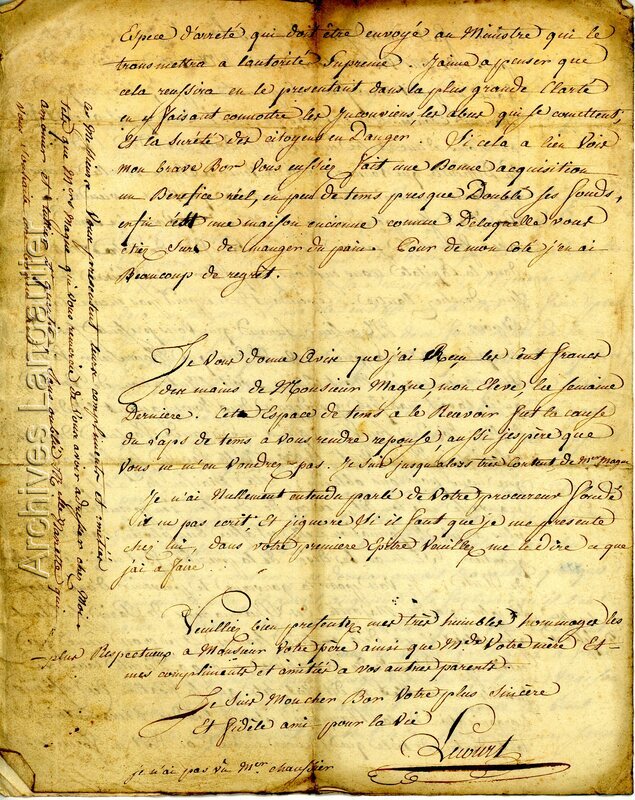 Espece d'arreté qui doit être envoyé au Ministre qui le
transmettra a l'autorité Supreme. J'aime a penser que
cela reussira en le presentant dans la plus grande Clarté
en y faisant connoitre les les abus qui se comettent,
Et la sureté des citoyens en Danger. Si cela a lieu Vois
mon brave Bor Vous eussiez fait une Bonne acquisition
un Benefice réel, en peu de tems presque Doublé ses fonds,
enfin c'ett une maison encienne comme Delagrelle vous
etiez Sure de manger du pain. Pour de mon Coté j'en ai
Beaucoup de regret.
Je Vous donne Avise que j'ai Reçu les Cent francs
des mains de Monsieur Maque, mon Eleve, la semaine
Derniere. Cette Espace de tems a le Recevoir fut la cause
du Laps de tems a Vous rendre reponse, aussi j'espère que
Vous ne m'en Voudrez pas. Je suis jusqu'alors très Content de Mr Maque
Je n'ai Nullement entendu parlé de Votre procureur fondé
il ne pas ecrit, Et j'ignore Si il faut que je me presente
chez lui, dans votre premiere Epître Veuillez me le dire ce que
j'ai a faire.
Veuillez bien presenter mes très humbles hommages les
plus Respectueux a Monsieur Votre Père ainsi que Mde Votre mère Et
mes compliments et amitiés a vos autres parents.
Je Suis Mon cher Bor Votre plus Sincère
Et fidèle ami pour la Vie
Lecourt
je n'ai pas vû Mer chaussier
ces Messieurs Vous presentent leurs compliments et amitiés
tels que Mrs Maque qui vous remercie de Vous avoir adresser chez Moi
Archives Lanoaurier